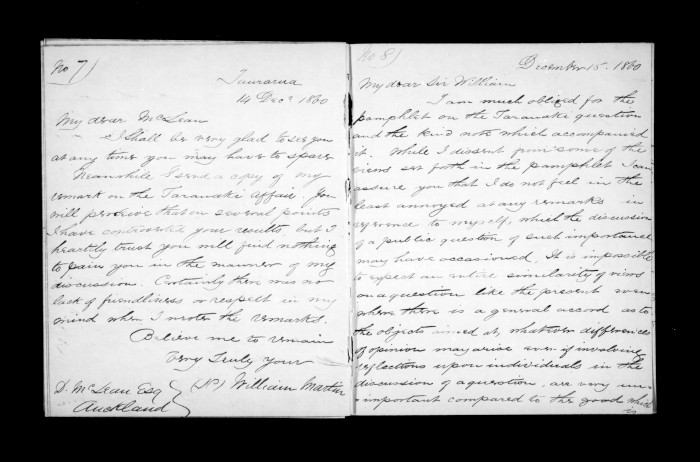 No 7)
Taurarua
14 Decr 1860
My dear McLean
I shall be very glad to see you
at any time you may have to spare
Meanwhile I send a copy of my
remark on the Taranaki Affair. You
will perceive that on several points
I have controverted your results but I
heartily trust you will find nothing
to pain you in the manner of my
discussion. Certainly there was no
lack of friendliness or respect in my
mind when I wrote the remarks.
Believe me to remain
Very truly your
(Sd) William Martin
D. McLean Esq
Auckland
No 8)
December 15. 1860
My dear Sir William
I am much obliged for the
pamphlet on the Taranaki question
and the kind note which accompanied
it. While I dissent from some of the
views set forth in the pamphlet I can
assure you that I do not feel in the
least annoyed at any remarks in
reference to myself, which the discussion
of a public question of such importance
may have occasioned. It is impossible
to expect an entire similarity of views
on a question like the present even
when there is a general accord as to
the objects aimed at, whatever differences
of opinion may arise even if involving
reflections upon individuals in the
discussion of a question, are very un-
important compared to the good which
is